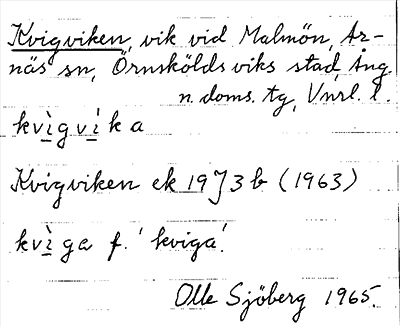 Kvigviken, vik vid Malmön, Ar-
näs sn, Örnsköldsviks stad, Ång.
n. doms. tg, Vnrl. l.
kvì̱gvì̱ka
Kvigviken ek 19J3b (1963)
kvì̱ga f. 'kviga'.
Olle Sjöberg 1965.